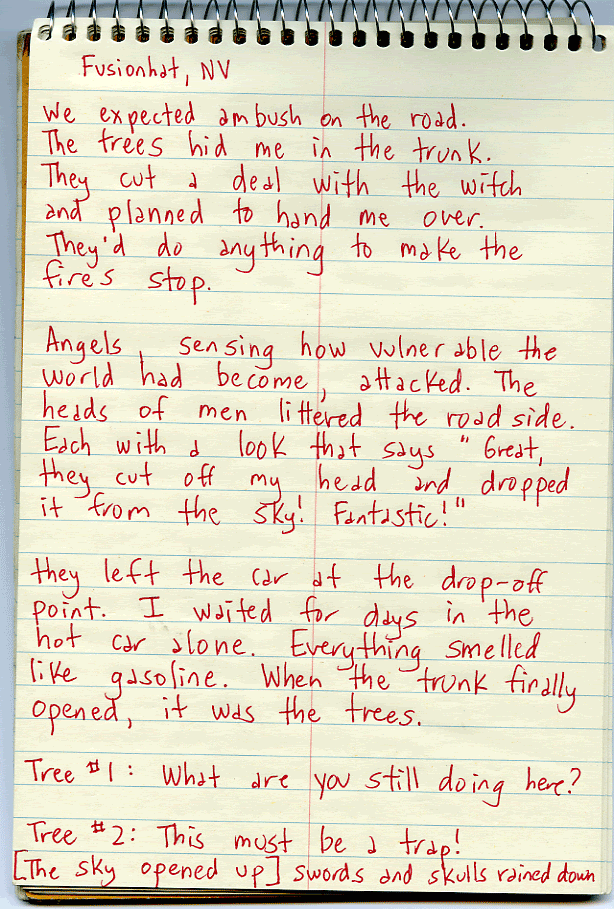 Fusionhat, NV
We expected ambush on the road.
The trees hid me in the trunk.
They cut a deal with the witch
and planned to hand me over.
They'd do anything to make the
fires stop.
Angels, sensing how vulnerable the
world had become, attacked. The
heads of men littered the roadside.
Each with a look that says "Great,
they cut off my head and dropped
it from the sky! Fantastic!"
they left the car at the drop-off
point. I waited for days in the
hot car alone. Everything smelled
like gasoline. When the trunk finally
opened, it was the trees.
Tree #1: What are you still doing here?
Tree #2: This must be a trap!
[The sky opened up] swords and skulls rained down